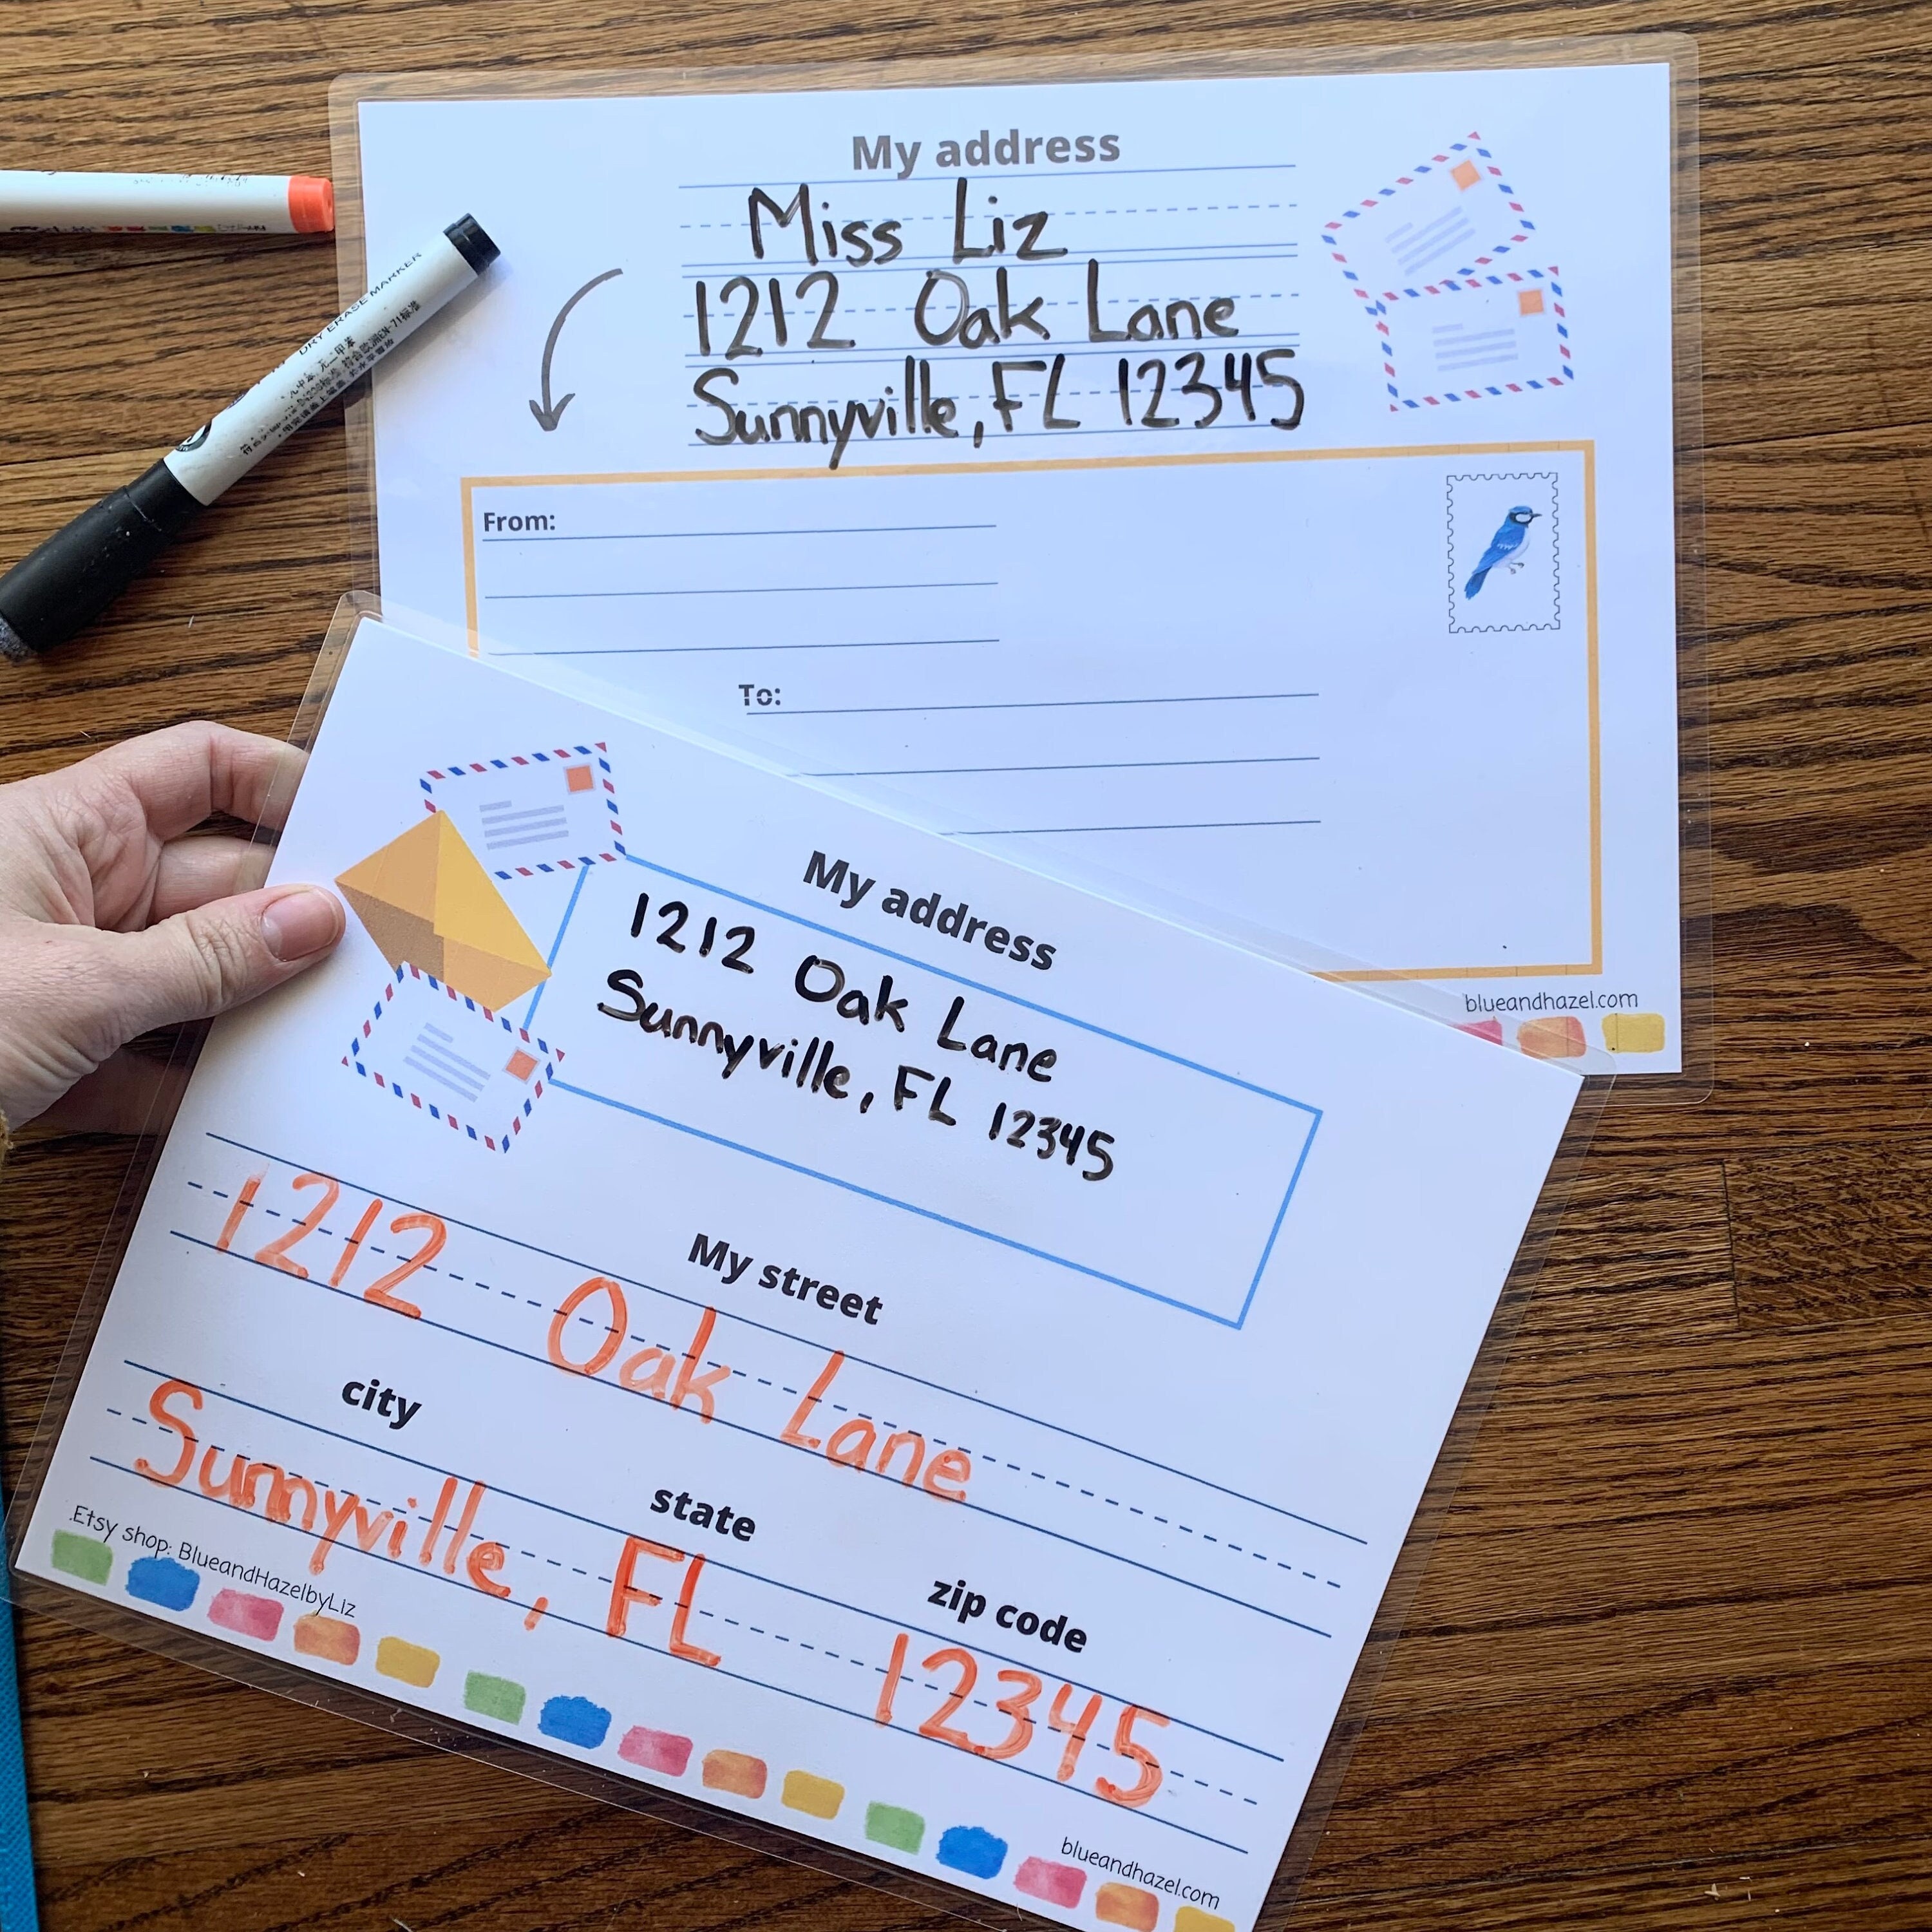 My address
Miss Liz
1212 Oak Lane
Sunnyville, FL 12345
DRY ERASE MARKER
From:
To:
blueandhazel.com
My address
1212 Oak Lane
Sunnyville, FL 12345
My street
1212 Oak Lane
city state zip code
Sunnyville, FL 12345
Etsy shop: BlueandHazelbyLiz
blueandhazel.com